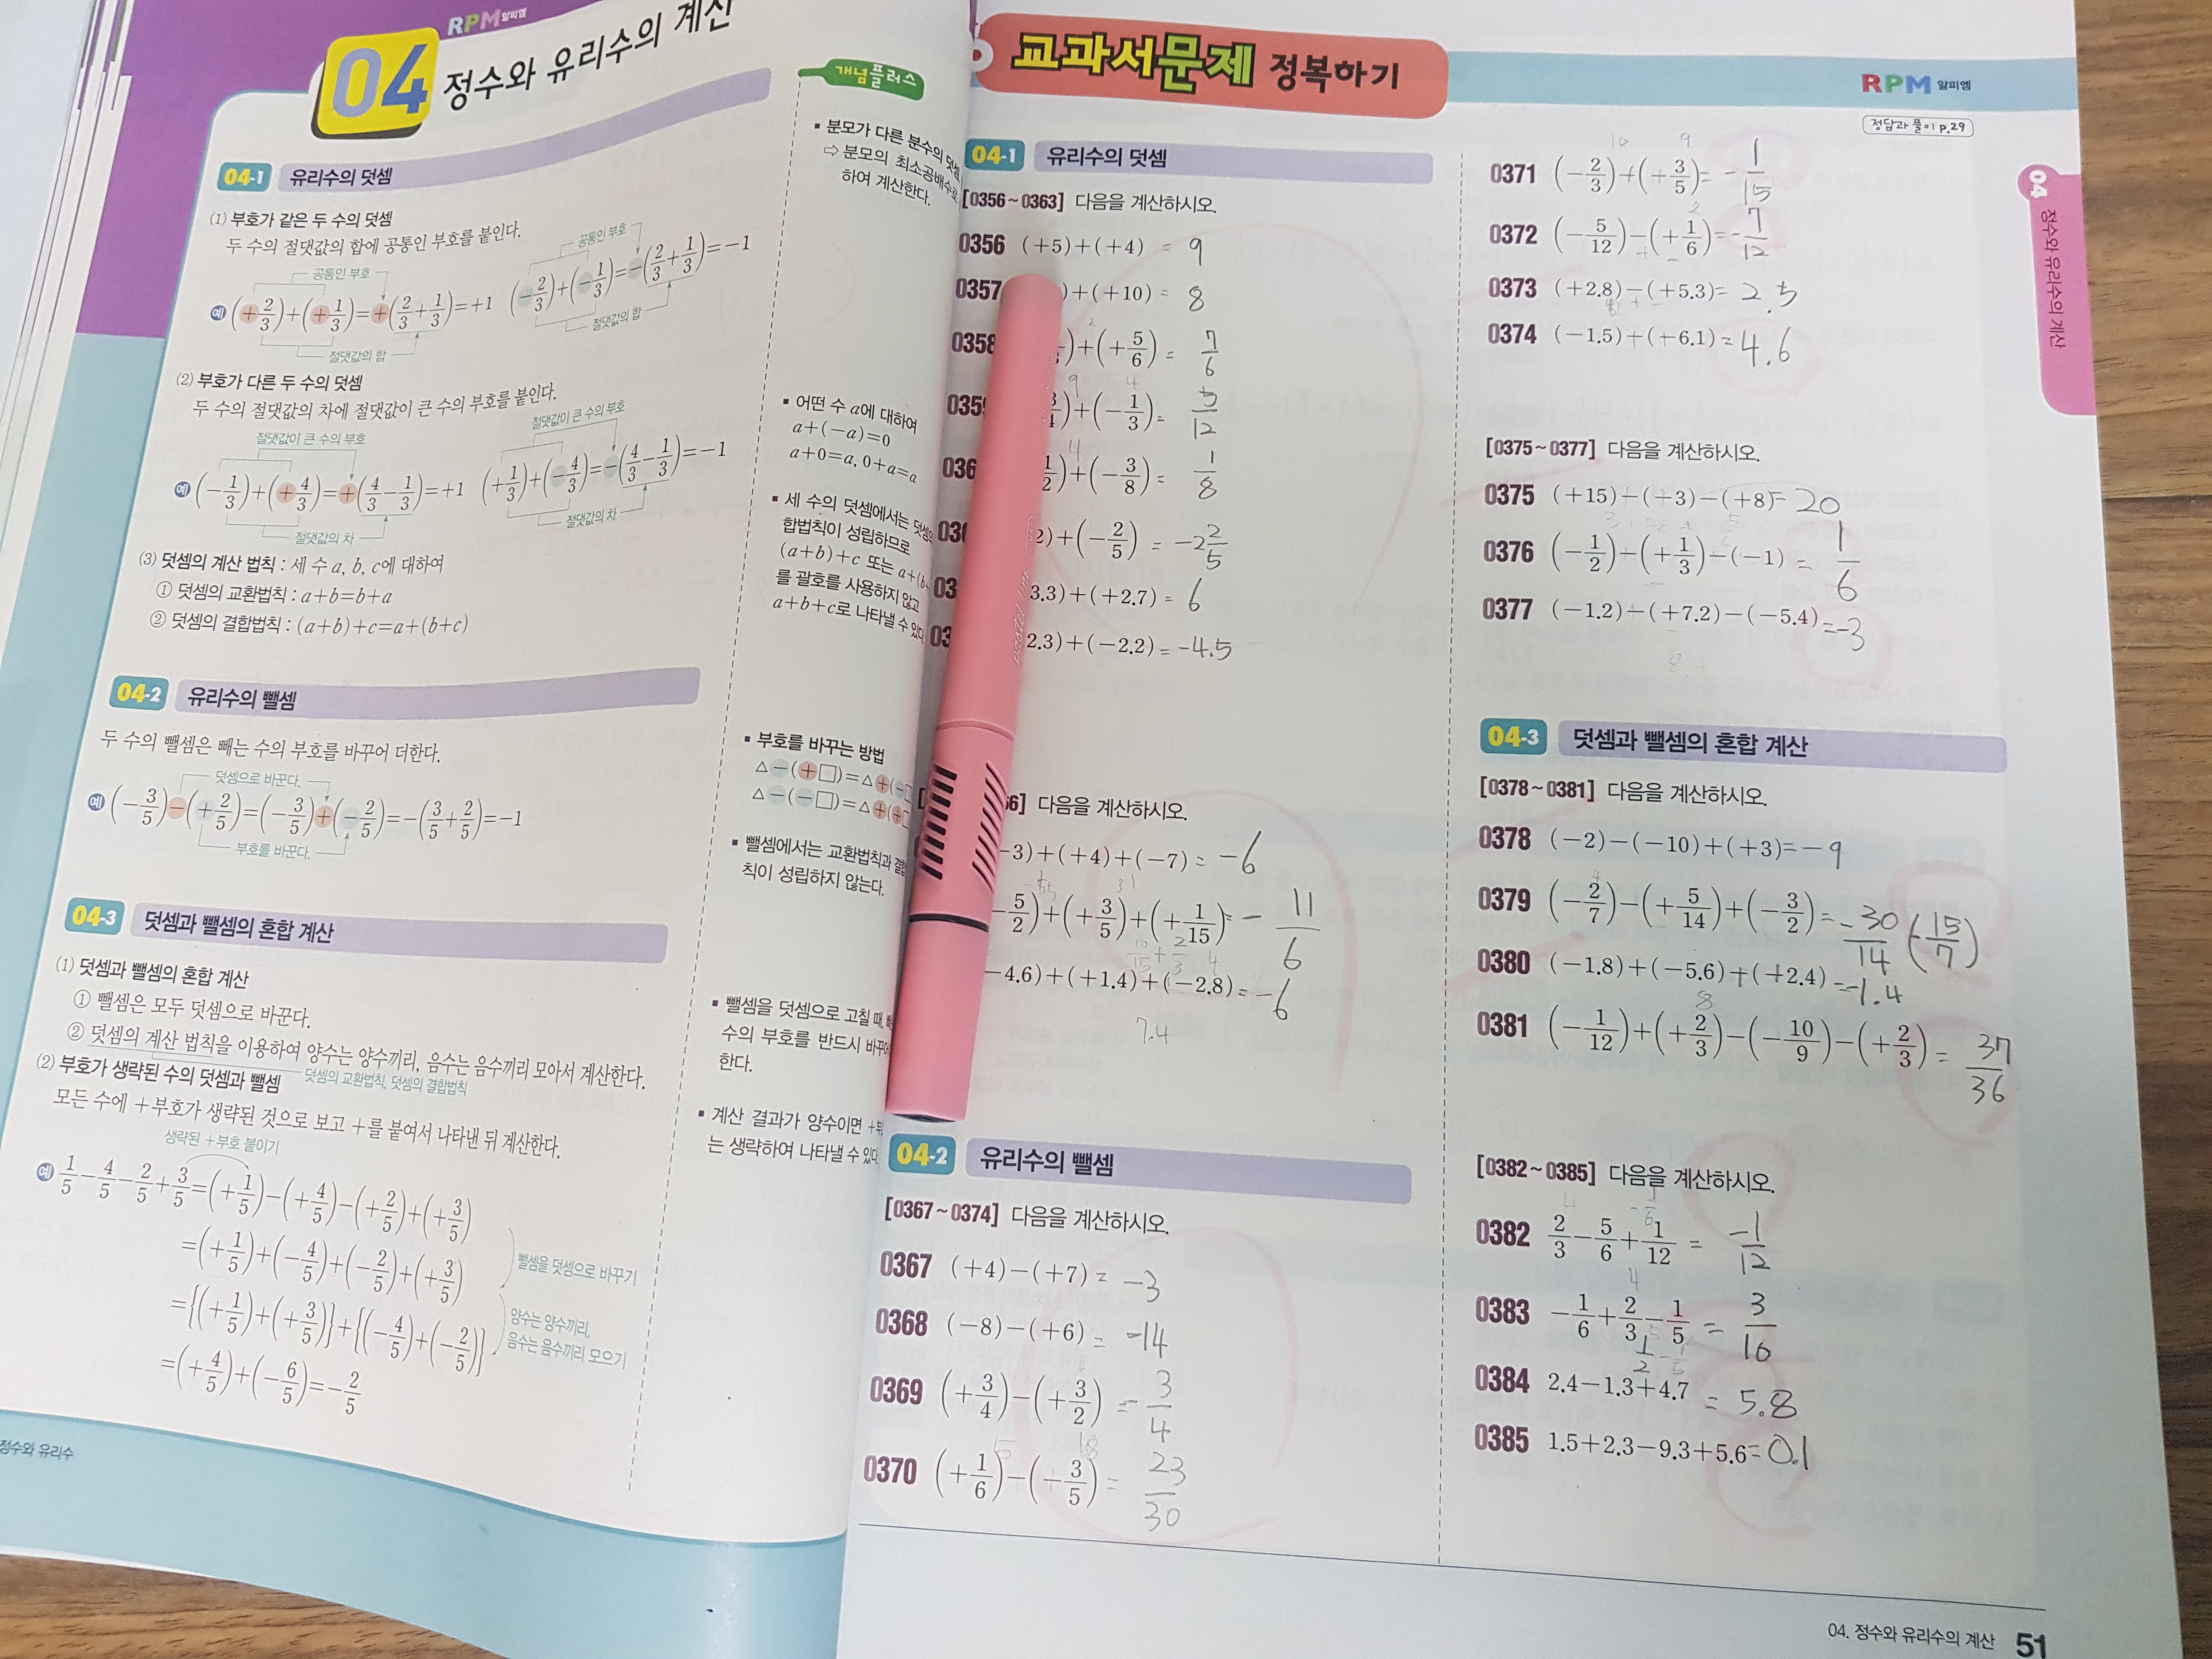 RPM 알피엠
04 정수와 유리수의 계산
04-1 유리수의 덧셈
(1) 부호가 같은 두 수의 덧셈
두 수의 절댓값의 합에 공통인 부호를 붙인다.
공통인 부호
공통인 부호
예 (+2/3)+(+1/3)=+(2/3+1/3)=+1 (-2/3)+(-1/3)=-(2/3+1/3)=-1
절댓값의 합
절댓값의 합
(2) 부호가 다른 두 수의 덧셈
두 수의 절댓값의 차에 절댓값이 큰 수의 부호를 붙인다.
절댓값이 큰 수의 부호
절댓값이 큰 수의 부호
예 (-1/3)+(+4/3)=+(4/3-1/3)=+1 (+1/3)+(-4/3)=-(4/3-1/3)=-1
절댓값의 차
절댓값의 차
(3) 덧셈의 계산 법칙 : 세 수 a, b, c에 대하여
① 덧셈의 교환법칙 : a+b=b+a
② 덧셈의 결합법칙 : (a+b)+c=a+(b+c)
04-2 유리수의 뺄셈
두 수의 뺄셈은 빼는 수의 부호를 바꾸어 더한다.
덧셈으로 바꾼다.
예 (-3/5)-(+2/5)=(-3/5)+(-2/5)=-(3/5+2/5)=-1
부호를 바꾼다.
04-3 덧셈과 뺄셈의 혼합 계산
(1) 덧셈과 뺄셈의 혼합 계산
① 뺄셈은 모두 덧셈으로 바꾼다.
② 덧셈의 계산 법칙을 이용하여 양수는 양수끼리, 음수는 음수끼리 모아서 계산한다.
덧셈의 교환법칙, 덧셈의 결합법칙
(2) 부호가 생략된 수의 덧셈과 뺄셈
모든 수에 +부호가 생략된 것으로 보고 +를 붙여서 나타낸 뒤 계산한다.
생략된 +부호 붙이기
예 1/5-4/5-2/5+3/5=(+1/5)-(+4/5)-(+2/5)+(+3/5)
=(+1/5)+(-4/5)+(-2/5)+(+3/5)
뺄셈을 덧셈으로 바꾸기
={(+1/5)+(+3/5)}+{(-4/5)+(-2/5)}
양수는 양수끼리,
음수는 음수끼리 모으기
=(+4/5)+(-6/5)=-2/5
정수와 유리수
개념플러스
▪ 분모가 다른 분수의
⇨ 분모의 최소공배수로
하여 계산한다.
▪ 어떤 수 a에 대하여
a+(-a)=0
a+0=a, 0+a=a
▪ 세 수의 덧셈에서는
합법칙이 성립하므로
(a+b)+c 또는
를 괄호를 사용하지 않고
a+b+c로 나타낼 수 있다
▪ 부호를 바꾸는 방법
△-(+□)=△+(-□
△-(-□)=△+(+□
▪ 뺄셈에서는 교환법칙과
칙이 성립하지 않는다.
▪ 뺄셈을 덧셈으로 고칠 때,
수의 부호를 반드시 바꾸어
한다.
▪ 계산 결과가 양수이면
는 생략하여 나타낼 수 있다
교과서문제 정복하기
RPM 알피엠
정답과 풀이 p.29
04-1 유리수의 덧셈
[0356~0363] 다음을 계산하시오.
0356 (+5)+(+4) = 9
0357 )+(+10) = 8
0358 )+(+5/6) = 7/6
)+(-1/3) = 5/12
1/2)+(-3/8) = 1/8
2)+(-2/5) = -2 2/5
3.3)+(+2.7) = 6
2.3)+(-2.2) = -4.5
66] 다음을 계산하시오.
-3)+(+4)+(-7) = -6
-5/2)+(+3/5)+(+1/15) = -11/6
-4.6)+(+1.4)+(-2.8) = -6
7.4
04-2 유리수의 뺄셈
[0367~0374] 다음을 계산하시오.
0367 (+4)-(+7) = -3
0368 (-8)-(+6) = -14
0369 (+3/4)-(+3/2) = -3/4
0370 (+1/6)-(+3/5) = 23/30
0371 (-2/3)+(+3/5) = -1/15
0372 (-5/12)-(+1/6) = -7/12
0373 (+2.8)-(+5.3) = 2.5
0374 (-1.5)+(+6.1) = 4.6
[0375~0377] 다음을 계산하시오.
0375 (+15)-(+3)-(+8) = 20
0376 (-1/2)-(+1/3)-(-1) = 1/6
0377 (-1.2)-(+7.2)-(-5.4) = -3
04-3 덧셈과 뺄셈의 혼합 계산
[0378~0381] 다음을 계산하시오.
0378 (-2)-(-10)+(+3) = -9
0379 (-2/7)-(+5/14)+(-3/2) = -30/14 (-15/7)
0380 (-1.8)+(-5.6)+(+2.4) = -1.4
0381 (-1/12)+(+2/3)-(-10/9)-(+2/3) = 37/36
[0382~0385] 다음을 계산하시오.
0382 2/3-5/6+1/12 = -1/12
0383 -1/6+2/3-1/5 = 3/10
0384 2.4-1.3+4.7 = 5.8
0385 1.5+2.3-9.3+5.6 = 0.1
04 정수와 유리수의 계산
04. 정수와 유리수의 계산 51